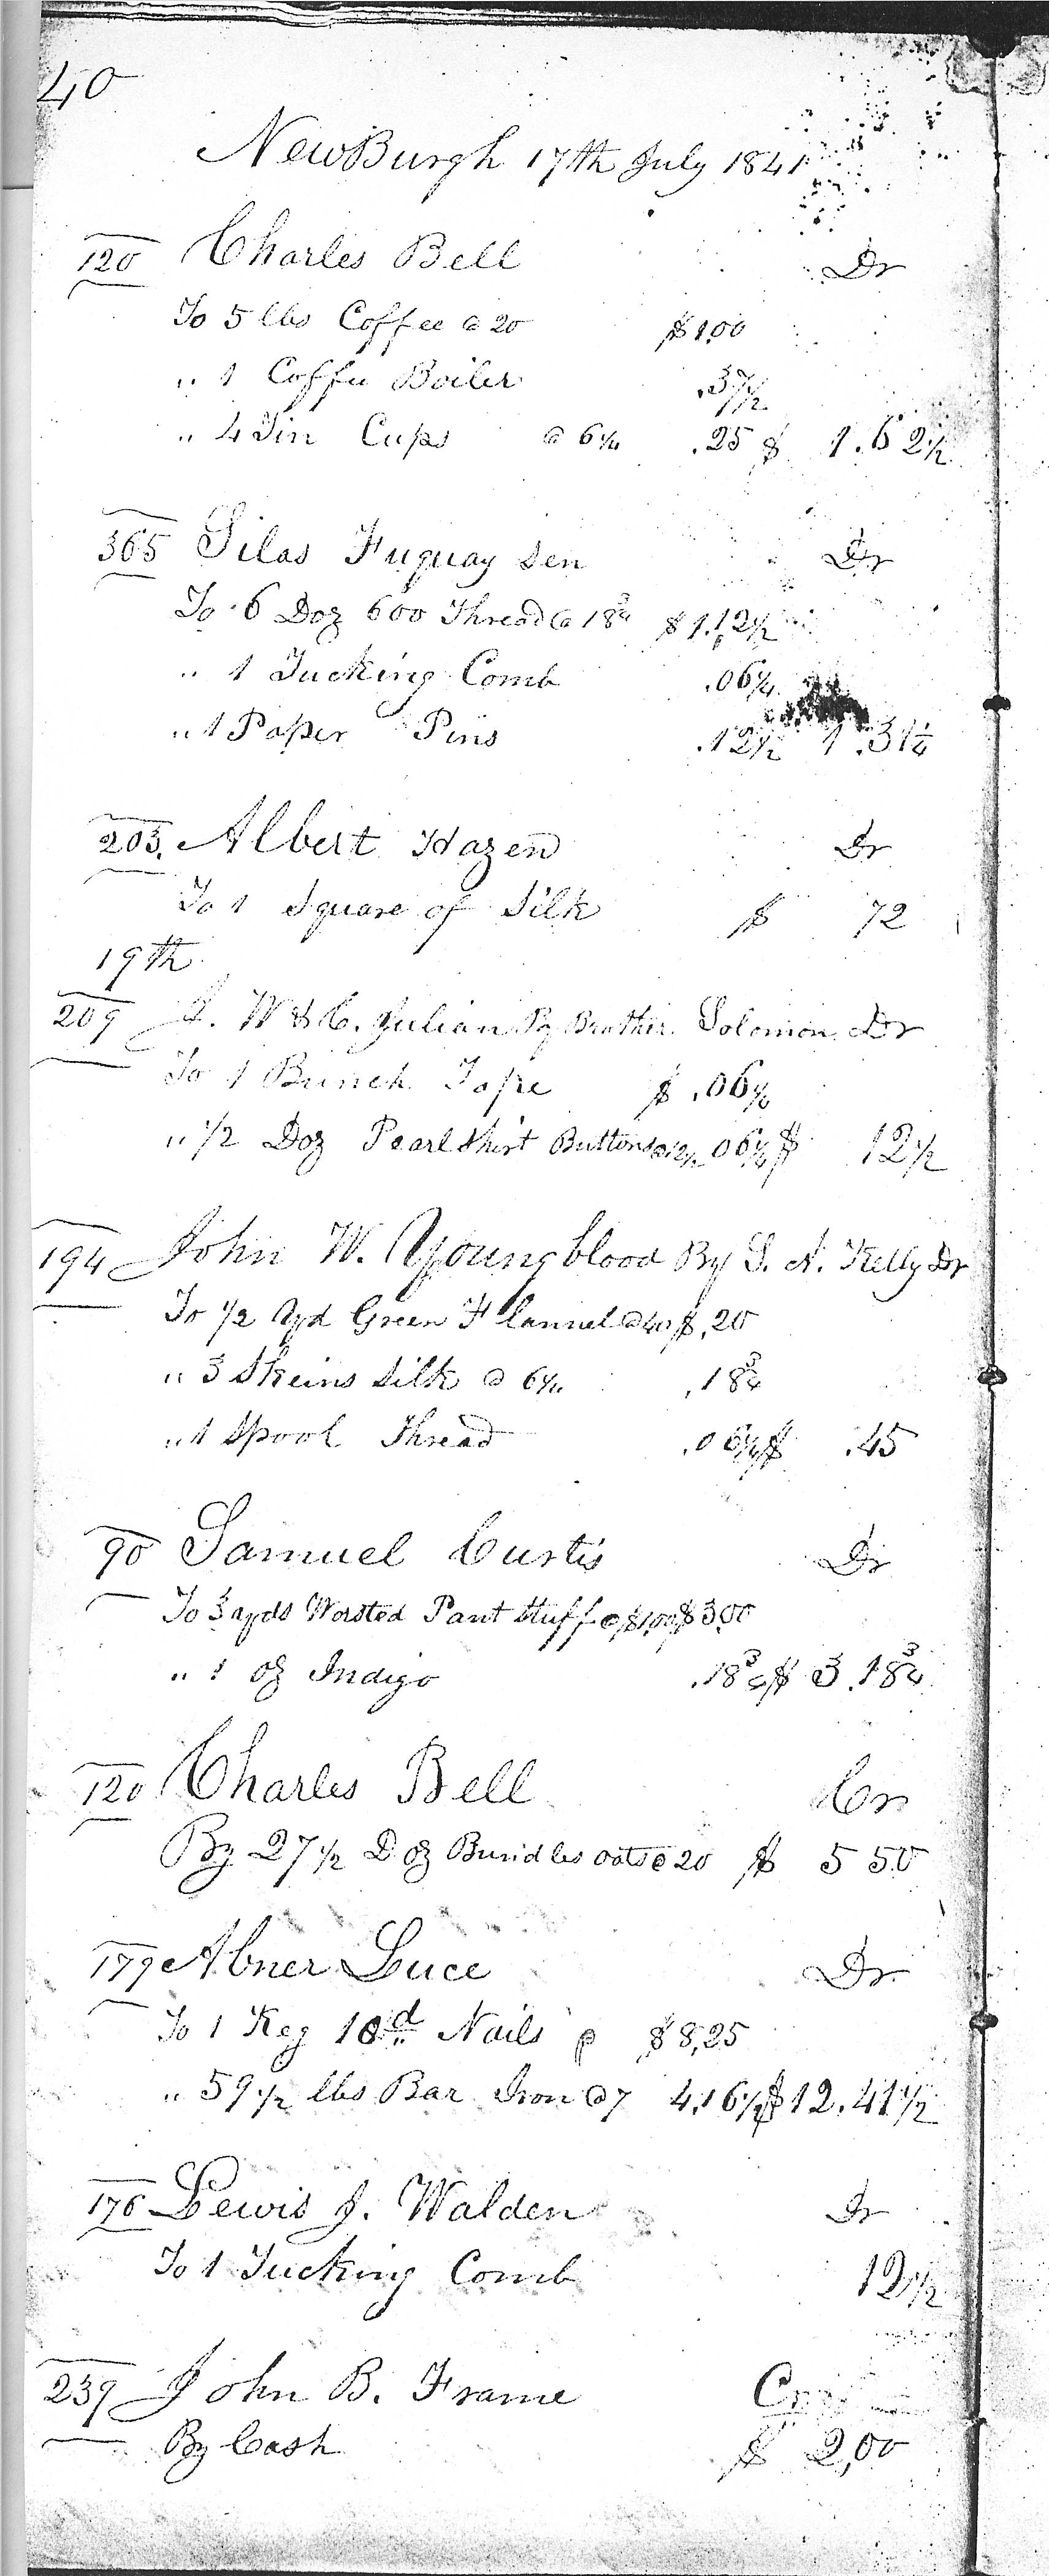 40
NewBurgh 17th July 1841
120 Charles Bell Dr
To 5 lbs Coffee @ 20 $1.00
" 1 Coffee Boiler .37 1/2
" 4 Tin Cups @ 6 1/4 .25 $ 1.62 1/2
365 Silas Fuquay Sen Dr
To 6 Doz 600 Thread @ 18 3/4 $1.12 1/2
" 1 Tucking Comb .06 1/4
" 1 Paper Pins .12 1/2 1.31 1/4
203. Albert Hazen Dr
To 1 Square of Silk $ 72
19th
209 J. W & C. Julian By Brother Solomon Dr
To 1 Bunch Tape $ .06 1/4
" 1/2 Doz Pearl Shirt Buttons @ 12 1/2 06 1/4 $ 12 1/2
194 John W. Youngblood By S. A. Kelly Dr
To 1/2 Yd Green Flannel @ 40 $ .20
" 3 Skeins Silk @ 6 1/4 .18 3/4
" 1 Spool Thread .06 1/4 $ .45
90 Samuel Curtis Dr
To 3 yds Worsted Pant Stuff @ $1.00 $3.00
" 1 oz Indigo .18 3/4 $ 3.18 3/4
120 Charles Bell Cr
By 27 1/2 Doz Bundles Oats @ 20 $ 5 50
179 Abner Luce Dr
To 1 Keg 10d Nails $8,25
" 59 1/2 lbs Bar Iron @ 7 4.16 1/2 $ 12.41 1/2
176 Lewis J. Walden Dr
To 1 Tucking Comb 12 1/2
239 John B. Frame Cr
By Cash $ 2,00